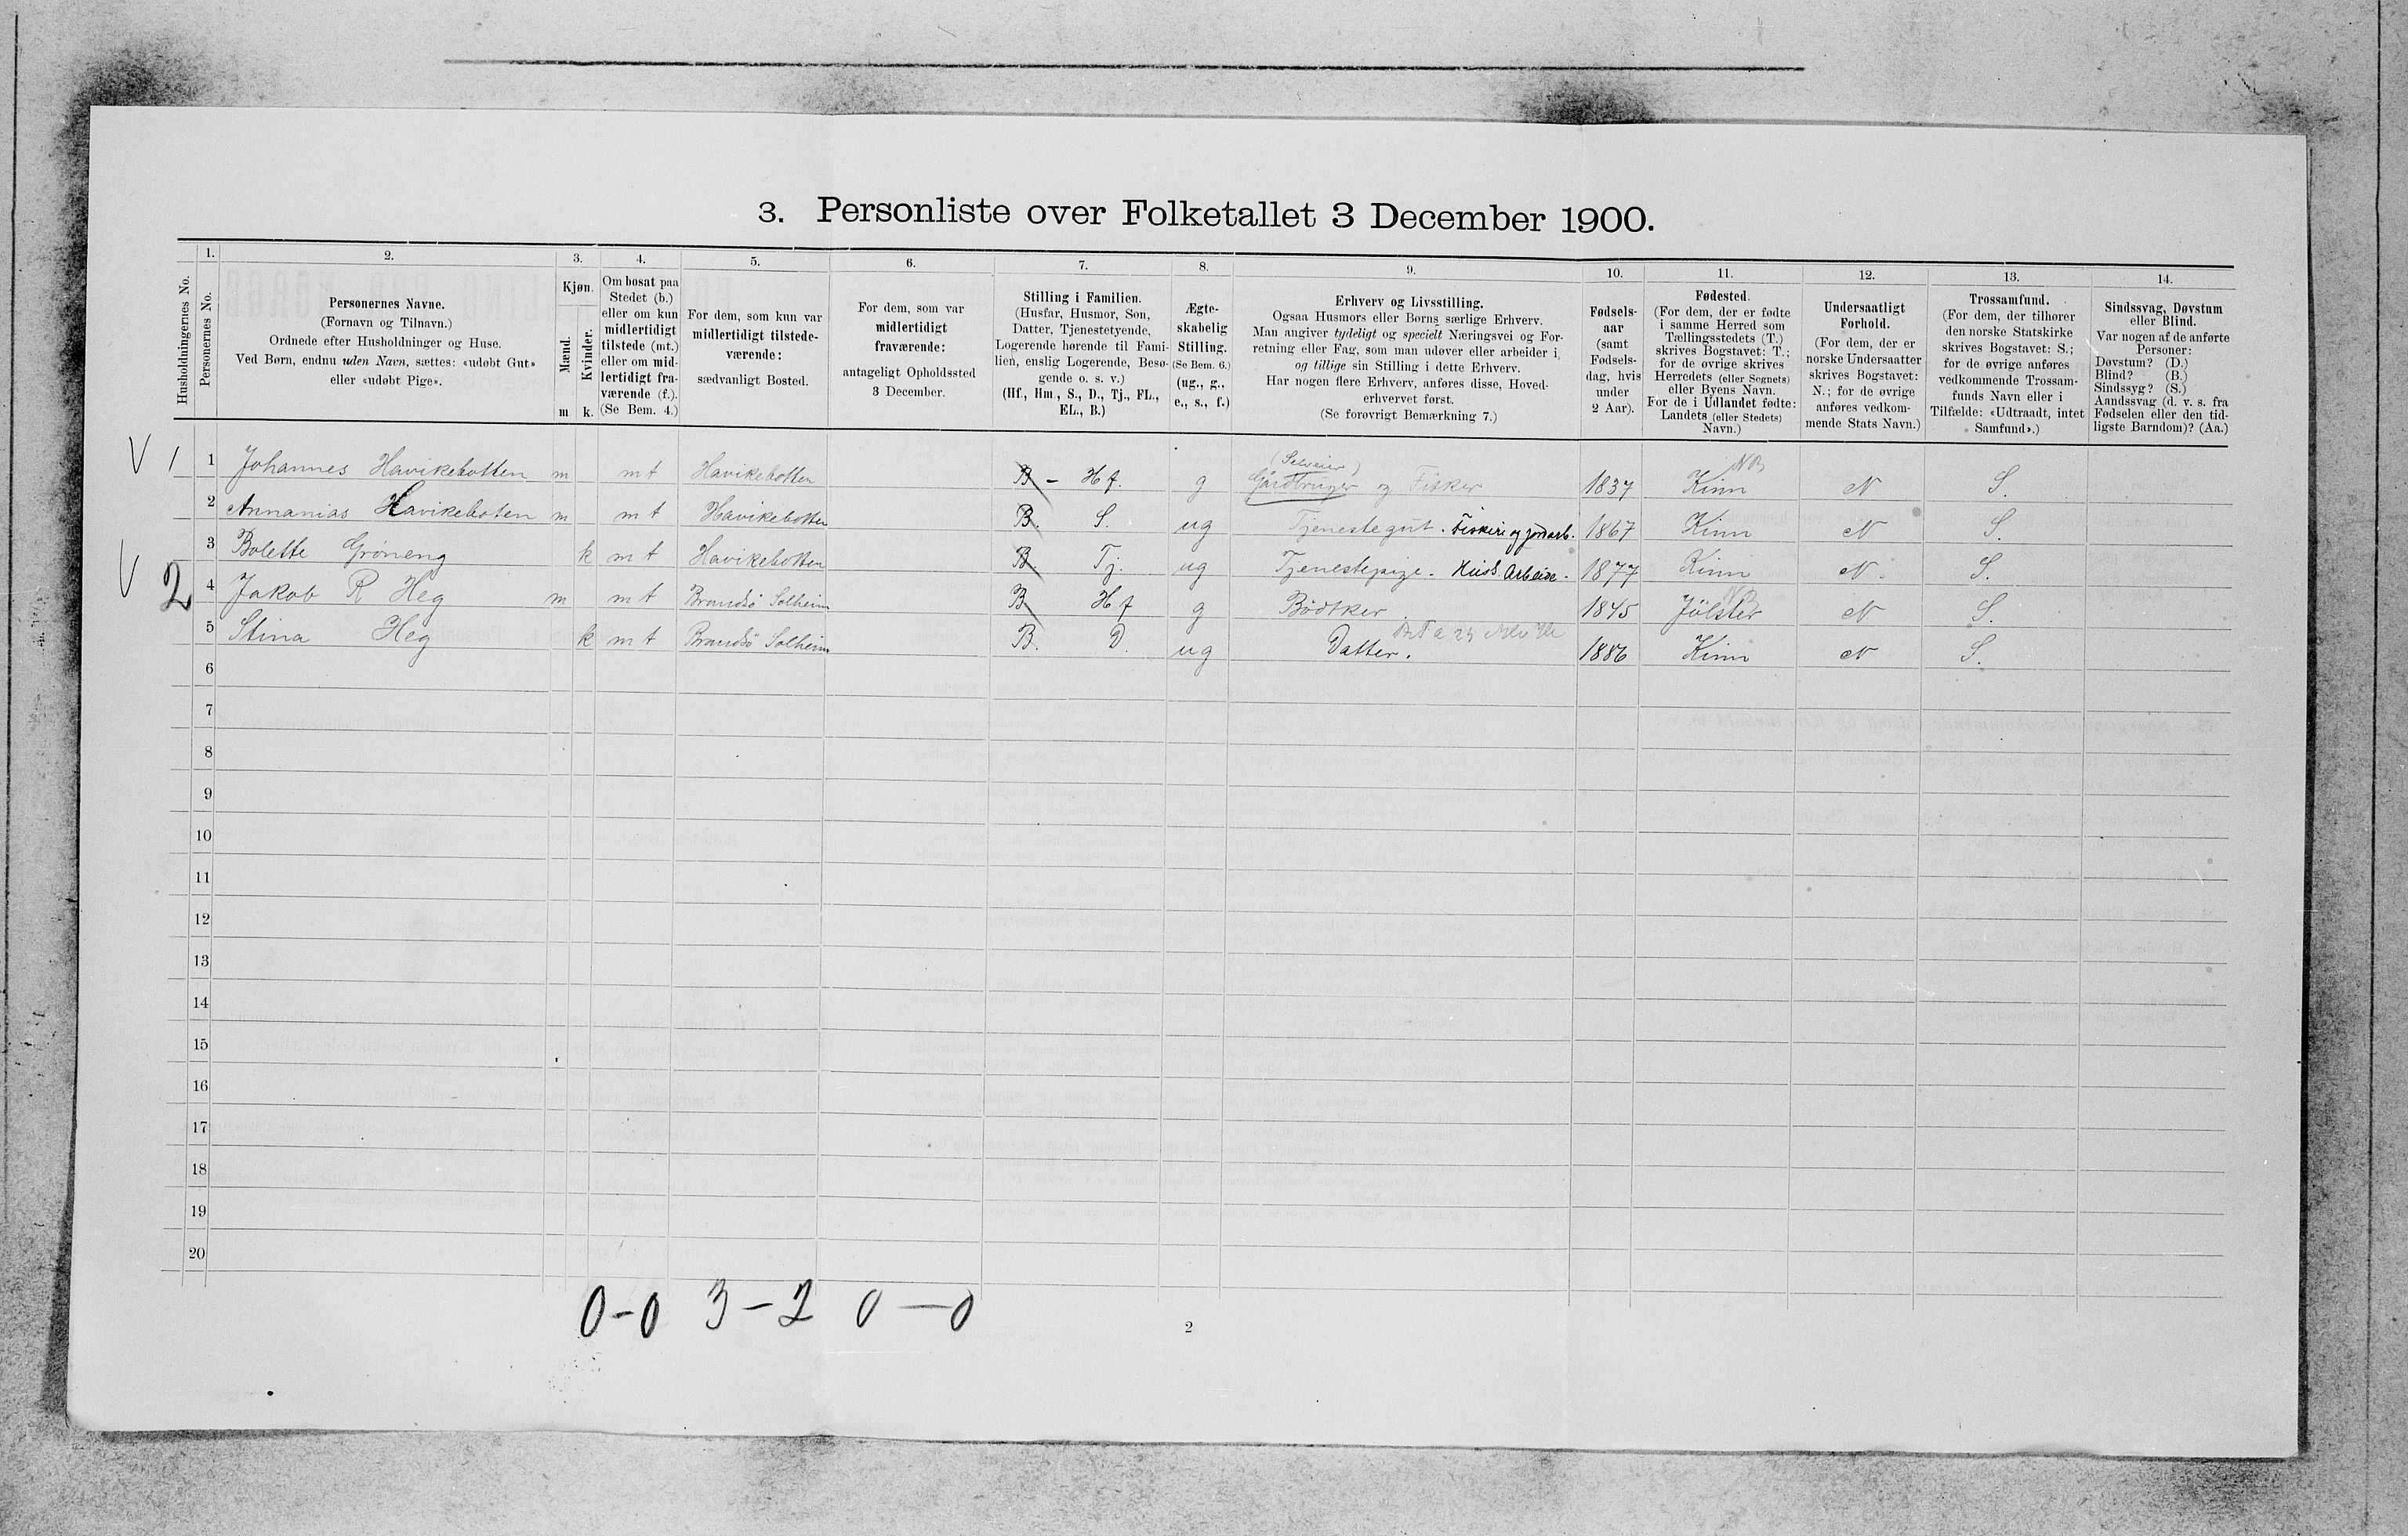 3. Personliste over Folketallet 3 December 1900.
Husholdningernes No.
1.
Personernes No.
2.
Personernes Navne.
(Fornavn og Tilnavn.)
Ordnede efter Husholdninger og Huse.
Ved Børn, endnu uden Navn, sættes: «udøbt Gut»
eller «udøbt Pige».
3.
Kjøn.
Mænd.
Kvinder.
m k.
4.
Om bosat paa
Stedet (b.)
eller om kun
midlertidigt
tilstede (mt.)
eller om mid-
lertidigt fra-
værende (f.).
(Se Bem. 4.)
5.
For dem, som kun var
midlertidigt tilstede-
værende:
sædvanligt Bosted.
6.
For dem, som var
midlertidigt
fraværende:
antageligt Opholdssted
3 December.
7.
Stilling i Familien.
(Husfar, Husmor, Søn,
Datter, Tjenestetyende,
Logerende hørende til Fami-
lien, enslig Logerende, Besø-
gende o. s. v.)
(Hf., Hm., S., D., Tj., FL.,
EL., B.)
8.
Ægte-
skabelig
Stilling.
(Se Bem. 6.)
(ug., g.,
e., s., f.)
9.
Erhverv og Livsstilling.
Ogsaa Husmors eller Børns særlige Erhverv.
Man angiver tydeligt og specielt Næringsvei og For-
retning eller Fag, som man udøver eller arbeider i,
og tillige sin Stilling i dette Erhverv.
Har nogen flere Erhverv, anføres disse, Hoved-
erhvervet først.
(Se forøvrigt Bemærkning 7.)
10.
Fødsels-
aar
(samt
Fødsels-
dag, hvis
under
2 Aar).
11.
Fødested.
(For dem, der er fødte
i samme Herred som
Tællingsstedets (T.)
skrives Bogstavet: T.;
for de øvrige skrives
Herredets (eller Sognets)
eller Byens Navn.
For de i Udlandet fødte:
Landets (eller Stedets)
Navn.)
12.
Undersaatligt
Forhold.
(For dem, der er
norske Undersaatter
skrives Bogstavet:
N.; for de øvrige
anføres vedkom-
mende Stats Navn.)
13.
Trossamfund.
(For dem, der tilhører
den norske Statskirke
skrives Bogstavet: S.;
for de øvrige anføres
vedkommende Trossam-
funds Navn eller i
Tilfælde: «Udtraadt, intet
Samfund».)
14.
Sindssvag, Døvstum
eller Blind.
Var nogen af de anførte
Personer:
Døvstum? (D.)
Blind? (B.)
Sindssyg? (S.)
Aandssvag (d. v. s. fra
Fødselen eller den tid-
ligste Barndom)? (Aa.)
V 1 1 Johannes Havikebotten m mt Havikebotten B – Hf. g (Selveier) Gårdbruger og Fisker 1837 Kinn NB N S.
2 Annanias Havikeboten m mt Havikebotten B. S. ug Tjenestegut. Fiskeri og jordarb. 1867 Kinn N S.
3 Bolette Gröneng k mt Havikebotten B. Tj. ug Tjenestepige. Huusl. Arbeide. 1877 Kinn N. S.
V 2 4 Jakob R Heg m mt Brandsö Solheim B Hf g Bödtker. 1845 Jölster NB N S.
5 Stina Heg k mt Brandsö Solheim B. D. ug Datter. 1886 Kinn N S.
6
7
8
9
10
11
12
13
14
15
16
17
18
19
20
0-0 3-2 0-0
2